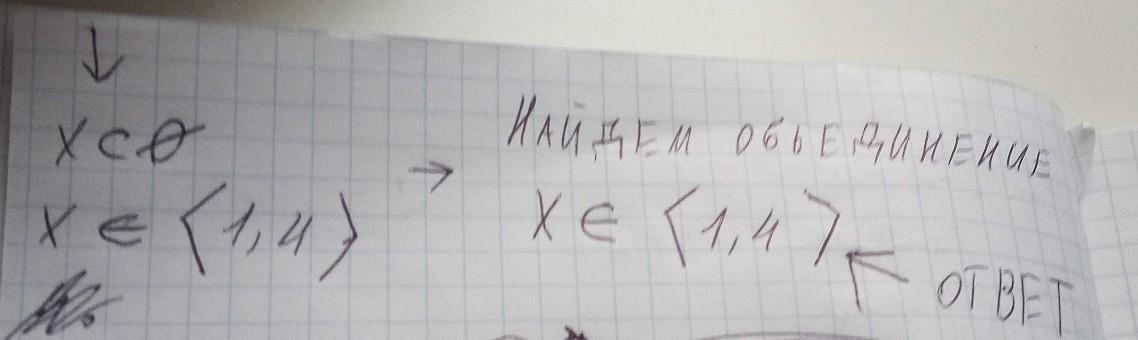 ↓
X ⊂ Ø
X ∈ ⟨1,4⟩
→
НАЙДЕМ ОБЬЕДИНЕНИЕ
X ∈ ⟨1,4⟩
← ОТВЕТ